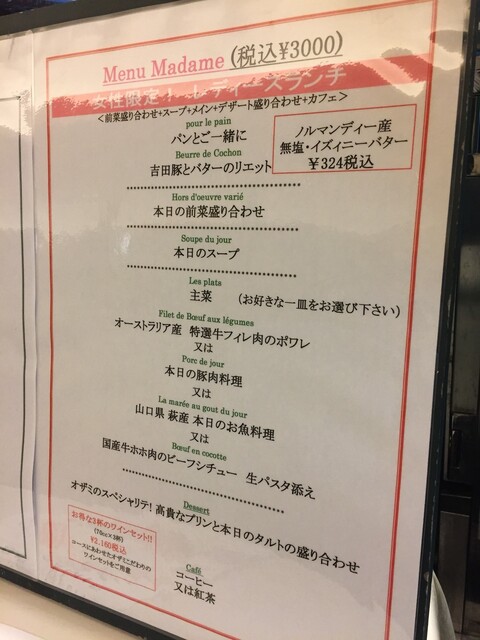 Menu Madame (税込¥3000)
女性限定！レディースランチ
<前菜盛り合わせ+スープ+メイン+デザート盛り合わせ+カフェ>
pour le pain
パンとご一緒に
Beurre de Cochon
吉田豚とバターのリエット
ノルマンディー産
無塩・イズィニーバター
¥324税込
Hors d'oeuvre varié
本日の前菜盛り合わせ
Soupe du jour
本日のスープ
Les plats
主菜 (お好きな一皿をお選び下さい)
Filet de Bœuf aux légumes
オーストラリア産 特選牛フィレ肉のポワレ
又は
Porc de jour
本日の豚肉料理
又は
La marée au gout du jour
山口県 萩産 本日のお魚料理
又は
Bœuf en cocotte
国産牛ホホ肉のビーフシチュー 生パスタ添え
Dessert
オザミのスペシャリテ! 高貴なプリンと本日のタルトの盛り合わせ
お得な3杯のワインセット!!
(70cc×3杯)
¥2,160税込
コースにあわせたオザミこだわりの
ワインセットをご用意
Café
コーヒー
又は紅茶